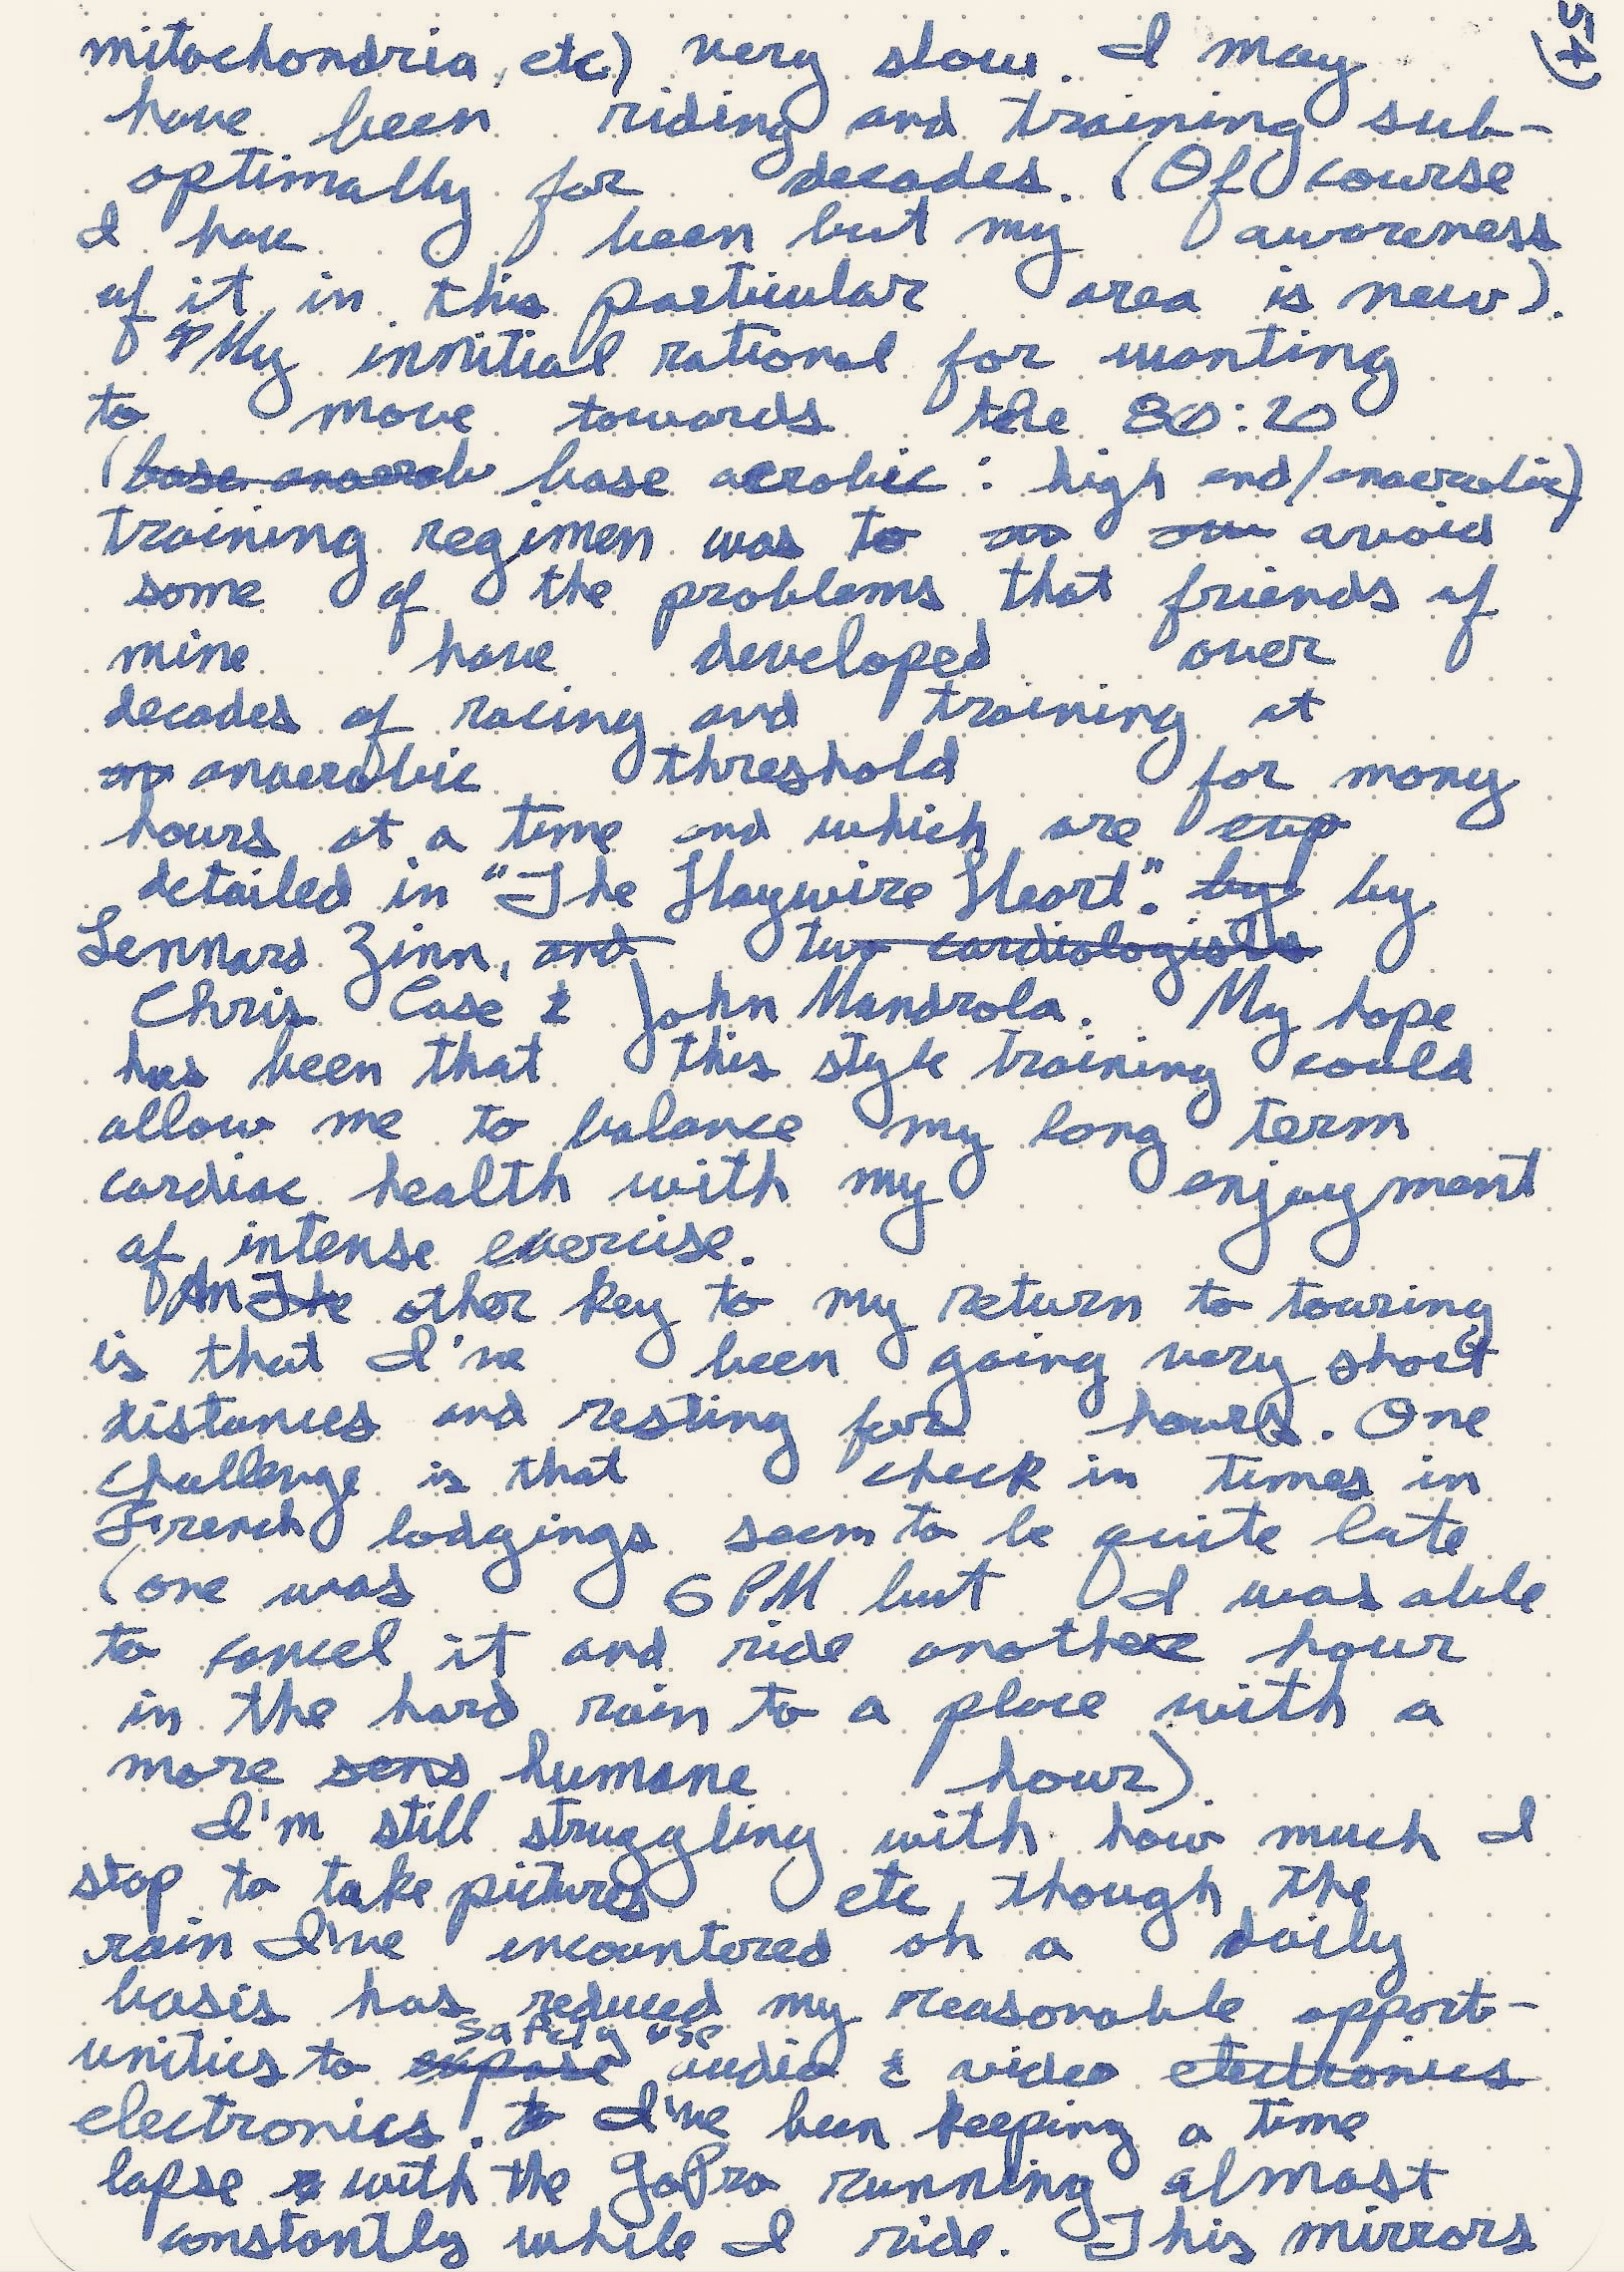 mitochondria, etc) very slow. I may
have been riding and training sub-
optimally for decades. (Of course
I have been but my awareness
of it in this particular area is new).
My innitial rational for wanting
to move towards the 80:20
(base anaerob base aerobic : high end/anaerobic)
training regimen was to an avoid
some of the problems that friends of
mine have developed over
decades of racing and training at
an anaerobic threshold for many
hours at a time and which are exp
detailed in "The Haywire Heart". by by
Lennard Zinn, and two cardiologists
Chris Case & John Mandrola. My hope
has been that this style training could
allow me to balance my long term
cardiac health with my enjoyment
of intense exercise.
An The other key to my return to touring
is that I've been going very short
distances and resting for hours. One
challenge is that check in times in
French lodgings seem to be quite late
(one was 6 PM but I was able
to cancel it and ride another hour
in the hard rain to a place with a
more sens humane hour).
I'm still struggling with how much I
stop to take pictures etc, though the
rain I've encountered on a daily
basis has reduced my reasonable opport-
safely use
unities to expose audio & video electronics
electronics. I've been keeping a time
lapse with the GoPro running almost
constantly while I ride. This mirrors